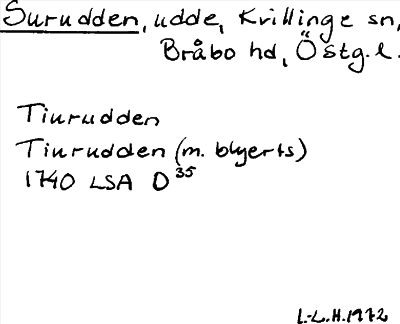 Surudden, udde, Krillinge sn,
Bråbo hd, Östg.l.
Tiurudden
Tiurudden (m. blyerts)
1740 LSA D 35
I.-L.H. 1972